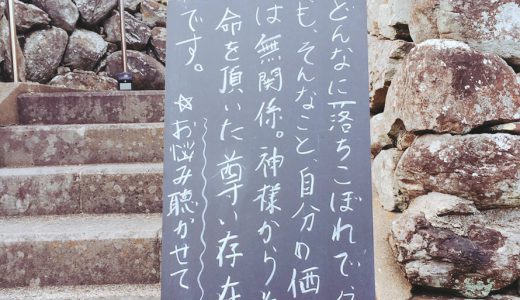 どんなに落ちこぼれで
も、そんなこと、自分の価
は無関係。神様から
命を頂いた尊い存在
です。
☆お悩み聴かせて